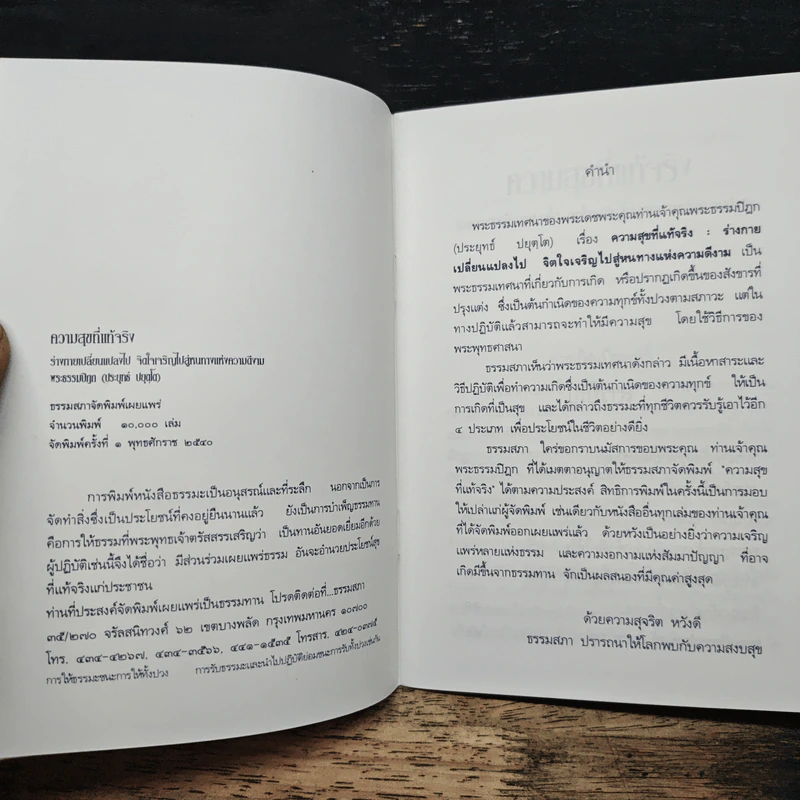 ความสุขที่แท้จริง
ร่างกายเปลี่ยนแปลงไป จิตใจเจริญไปสู่หนทางแห่งความดีงาม
พระธรรมปิฎก (ประยุทธ์ ปยุตฺโต)
ธรรมสภาจัดพิมพ์เผยแพร่
จำนวนพิมพ์ ๑๐,๐๐๐ เล่ม
จัดพิมพ์ครั้งที่ ๑ พุทธศักราช ๒๕๔๐
การพิมพ์หนังสือธรรมะเป็นอนุสรณ์และที่ระลึก นอกจากเป็นการ
จัดทำสิ่งซึ่งเป็นประโยชน์ที่คงอยู่ยืนนานแล้ว ยังเป็นการบำเพ็ญธรรมทาน
คือการให้ธรรมที่พระพุทธเจ้าตรัสสรรเสริญว่า เป็นทานอันยอดเยี่ยมอีกด้วย
ผู้ปฏิบัติเช่นนี้จึงได้ชื่อว่า มีส่วนร่วมเผยแพร่ธรรม อันจะอำนวยประโยชน์สุข
ที่แท้จริงแก่ประชาชน
ท่านที่ประสงค์จัดพิมพ์เผยแพร่เป็นธรรมทาน โปรดติดต่อที่...ธรรมสภา
๓๕/๒๗๐ จรัลสนิทวงศ์ ๖๒ เขตบางพลัด กรุงเทพมหานคร ๑๐๗๐๐
โทร. ๔๓๔-๔๒๖๗, ๔๓๔-๓๕๖๖, ๔๔๑-๑๕๓๕ โทรสาร. ๔๒๔-๐๓๗๕
การให้ธรรมะชนะการให้ทั้งปวง การรับธรรมะและนำไปปฏิบัติย่อมชนะการรับทั้งปวงเช่นกัน
คำนำ
พระธรรมเทศนาของพระเดชพระคุณท่านเจ้าคุณพระธรรมปิฎก
(ประยุทธ์ ปยุตฺโต) เรื่อง ความสุขที่แท้จริง : ร่างกาย
เปลี่ยนแปลงไป จิตใจเจริญไปสู่หนทางแห่งความดีงาม เป็น
พระธรรมเทศนาที่เกี่ยวกับการเกิด หรือปรากฏเกิดขึ้นของสังขารที่
ปรุงแต่ง ซึ่งเป็นต้นกำเนิดของความทุกข์ทั้งปวงตามสภาวะ แต่ใน
ทางปฏิบัติแล้วสามารถจะทำให้มีความสุข โดยใช้วิธีการของ
พระพุทธศาสนา
ธรรมสภาเห็นว่าพระธรรมเทศนาดังกล่าว มีเนื้อหาสาระและ
วิธีปฏิบัติเพื่อทำความเกิดซึ่งเป็นต้นกำเนิดของความทุกข์ ให้เป็น
การเกิดที่เป็นสุข และได้กล่าวถึงธรรมะที่ทุกชีวิตควรรับรู้เอาไว้อีก
๔ ประเภท เพื่อประโยชน์ในชีวิตอย่างดียิ่ง
ธรรมสภา ใคร่ขอกราบนมัสการขอบพระคุณ ท่านเจ้าคุณ
พระธรรมปิฎก ที่ได้เมตตาอนุญาตให้ธรรมสภาจัดพิมพ์ "ความสุข
ที่แท้จริง" ได้ตามความประสงค์ สิทธิการพิมพ์ในครั้งนี้เป็นการมอบ
ให้เปล่าแก่ผู้จัดพิมพ์ เช่นเดียวกับหนังสืออื่นทุกเล่มของท่านเจ้าคุณ
ที่ได้จัดพิมพ์ออกเผยแพร่แล้ว ด้วยหวังเป็นอย่างยิ่งว่าความเจริญ
แพร่หลายแห่งธรรม และความงอกงามแห่งสัมมาปัญญา ที่อาจ
เกิดมีขึ้นจากธรรมทาน จักเป็นผลสนองที่มีคุณค่าสูงสุด
ด้วยความสุจริต หวังดี
ธรรมสภา ปรารถนาให้โลกพบกับความสงบสุข